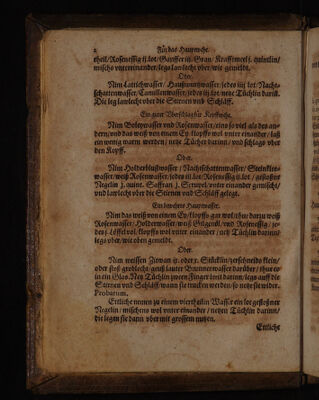 2 Für das Hauptwehe.
theil/Rosenessig ij.lot/Campffer iij.Gran/Krafftmeel j.quintlin/
mischs untereinander/legs lawlecht uber/wie gemeldt.
Oder
Nim Lattichwasser/Haußwurtzwasser/jedes iiij lot/Nacht-
schattenwasser/Camillenwasser/jedes ij.lot/netz Tüchlin darin.
Die leg lawlecht uber die Stirnen und Schläff.
Ein guter Uberschlag für Kopffwehe.
Nim Boleywasser und Rosenwasser/eins so viel als des an-
dern/und das weiß von einem Ey/klopffs wol unter einander/laß
ein wenig warm werden/netz Tücher darinn/und schlags uber
den Kopff.
Oder.
Nim Holderblustwasser/Nachtschattenwasser/Steinklee-
wasser/weiß Rosenwasser/jedes iij.lot/Rosenessig ij.lot/gestossen
Negelin j.quint. Saffran j.Scrupel/unter einander gemischt/
und lawlecht uber die Stirnen und Schläff gelegt.
Ein bewehrte Hauptwasser.
Nim das weiß von einem Ey/klopffs gar wol/thu darin weiß
Rosenwasser/Holderwasser/weiß Gilgenöl/und Rosenessig/je-
des j.Löffel vol/klopffs wol unter einander/netz Tüchlin darinn/
legs uber/wie oben gemeldt.
Oder.
Nim weissen Ziwan ij. oder 3. Stücklin/zerschneids klein/
oder stoß groblecht/geuß lauter Brunnenwasser darüber/thus
in ein Glas. Netz Tüchlin zween Finger breit darinn/legs auff die
Stirnen und Schläff/wann sie trucken werden/so netze sie wider.
Probatum.
Etliche nemen zu einem viertheilin Wasser ein lot gestoßner
Negelin/mischens wol unter einander/netzen Tüchlin darinn/
die legen sie dann uber mit grossem nutzen.
Etliche